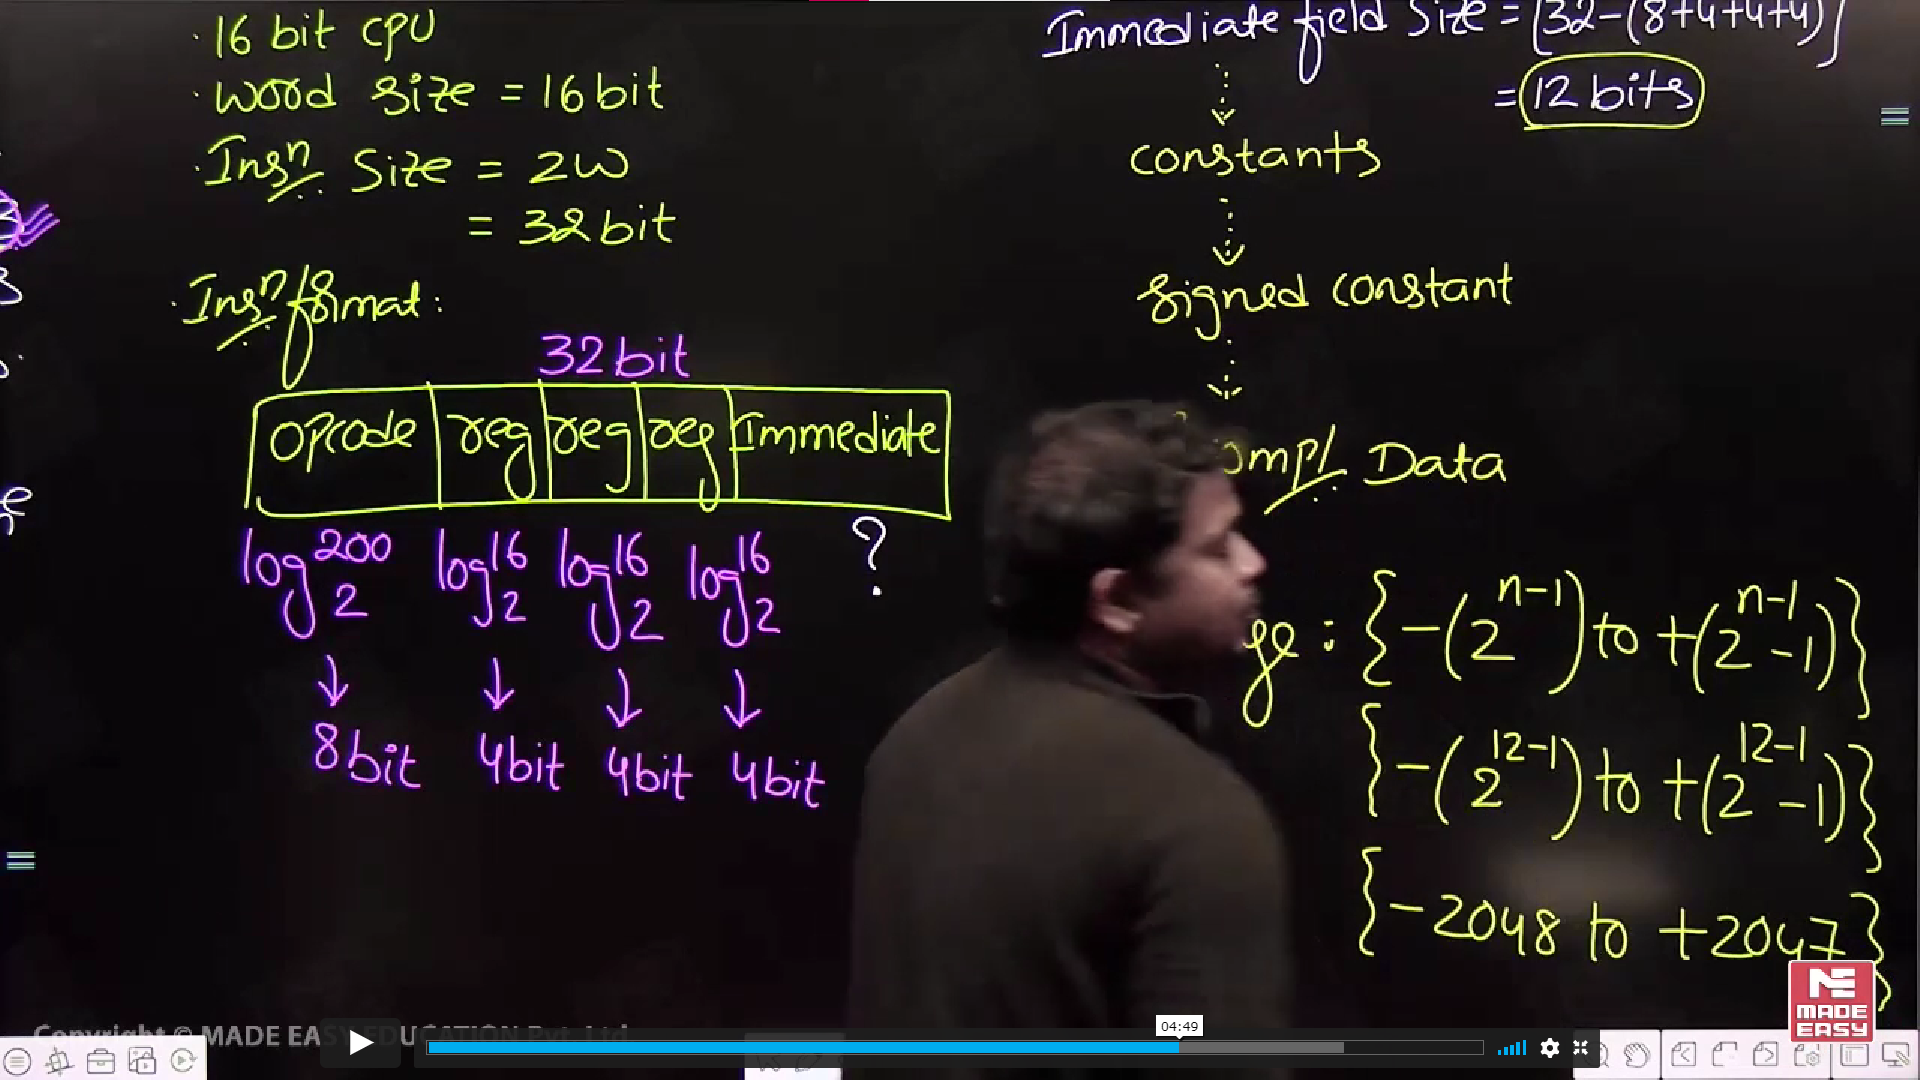 · 16 bit CPU
· Word size = 16 bit
· Insn Size = 2W
= 32 bit
· Insn format:
32 bit
opcode reg reg reg Immediate
log 200 2 log 16 2 log 16 2 log 16 2 ?
8 bit 4 bit 4 bit 4 bit
Immediate field Size = [32-(8+4+4+4)]
= 12 bits
constants
signed constant
Data
: {-(2^n-1) to +(2^n-1 -1)}
{-(2^12-1) to +(2^12-1 -1)}
{-2048 to +2047}
Copyright © MADE EASY EDUCATION Pvt. Ltd.
04:49
MADE
EASY